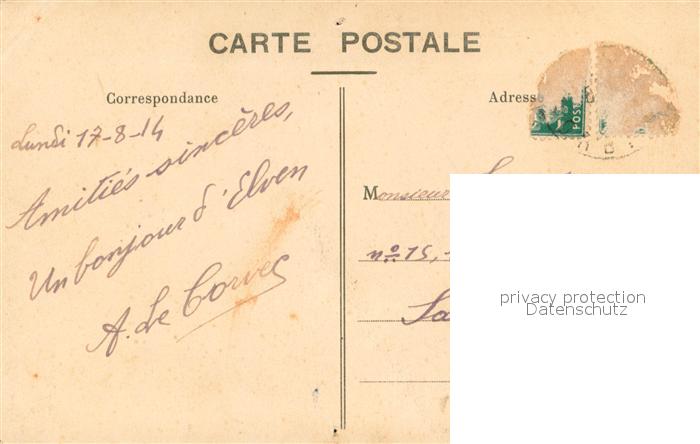 CARTE POSTALE
Correspondance
Lundi 17-8-14
Amitiés sincères,
Un bonjour d'Elven
A. Le Corvec
Adresse
POST
Monsieur
nº 15,
privacy protection
Datenschutz